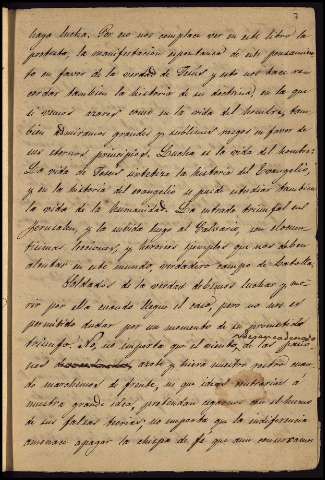 7
haya lucha. Por eso nos complace ver en este libro la
protesta, la manifestación espontanea de este pensamien-
to en favor de la verdad de Jesús y esto nos hace re-
cordar tambien la historia de su doctrina, en la que
si vemos azares como en la vida del hombre, tam-
bién admiramos grandes y sublimes rasgos en favor de
sus eternos principios. Lucha es la vida del hombre:
La vida de Jesus sintetiza la historia del Evangelio,
y en la historia del evangelio se puede estudiar tambien
la vida de la humanidad. La entrada triunfal en
Jerusalen, y la subida luego al Calvario, son elocuen-
tísimas lecciones, y heroicos ejemplos que nos deben
alentar en este mundo, verdadero campo de batalla.
Soldados de la verdad debemos luchar y mo-
rir por ella cuando llegue el caso, pero no nos es
permitido dudar por un momento de su prometido
triunfo. No, no importa que el viento de las pasio-
nes desencadenado
azote y hiera nuestro rostro cuan-
do marchemos de frente, ni que ideas contrarias á
nuestra grande idea, pretendan cegarnos con el humo
de sus falsas teorias; no importa que la indiferencia
amenace apagar la chispa de fé que aun conservamos